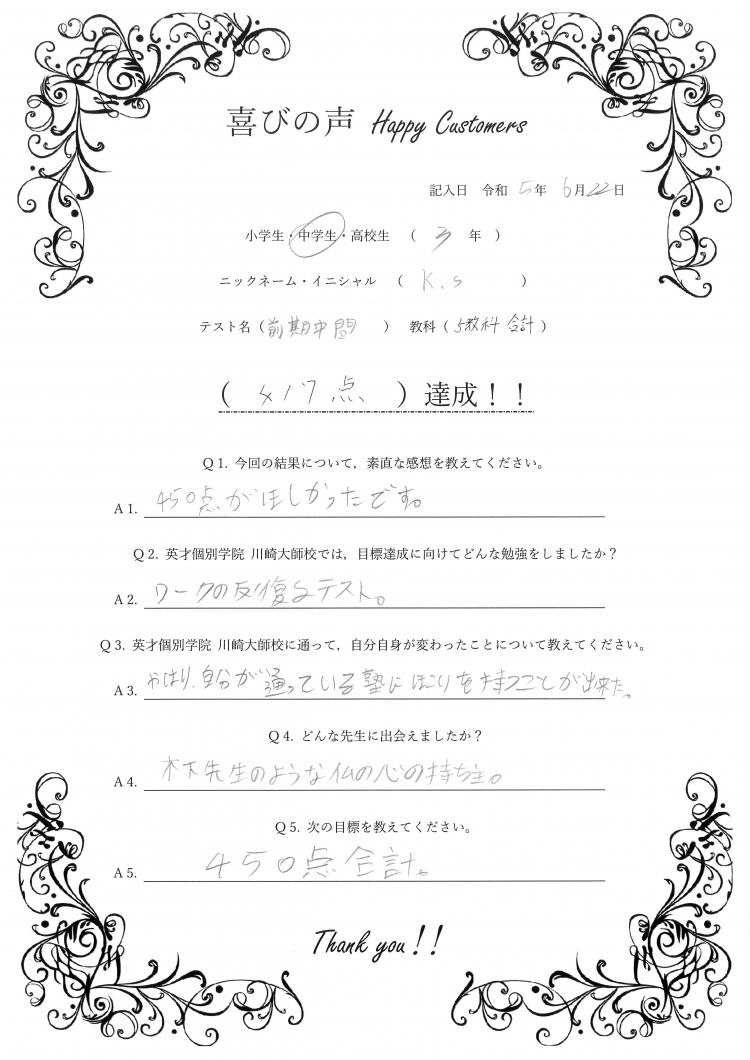 喜びの声 Happy Customers
記入日 令和 5年 6月22日
小学生・中学生・高校生 ( 3 年 )
ニックネーム・イニシャル ( K.S )
テスト名(前期中間 ) 教科(5教科 合計)
( 417点 )達成!!
Q1. 今回の結果について，素直な感想を教えてください。
A1. 450点がほしかったです。
Q2. 英才個別学院 川崎大師校では，目標達成に向けてどんな勉強をしましたか？
A2. ワークの反復&テスト。
Q3. 英才個別学院 川崎大師校に通って，自分自身が変わったことについて教えてください。
A3. やはり、自分が通っている塾にほこりを持つことが出来た。
Q4. どんな先生に出会えましたか？
A4. 木下先生のような仏の心の持ち主。
Q5. 次の目標を教えてください。
A5. 450点合計。
Thank you!!